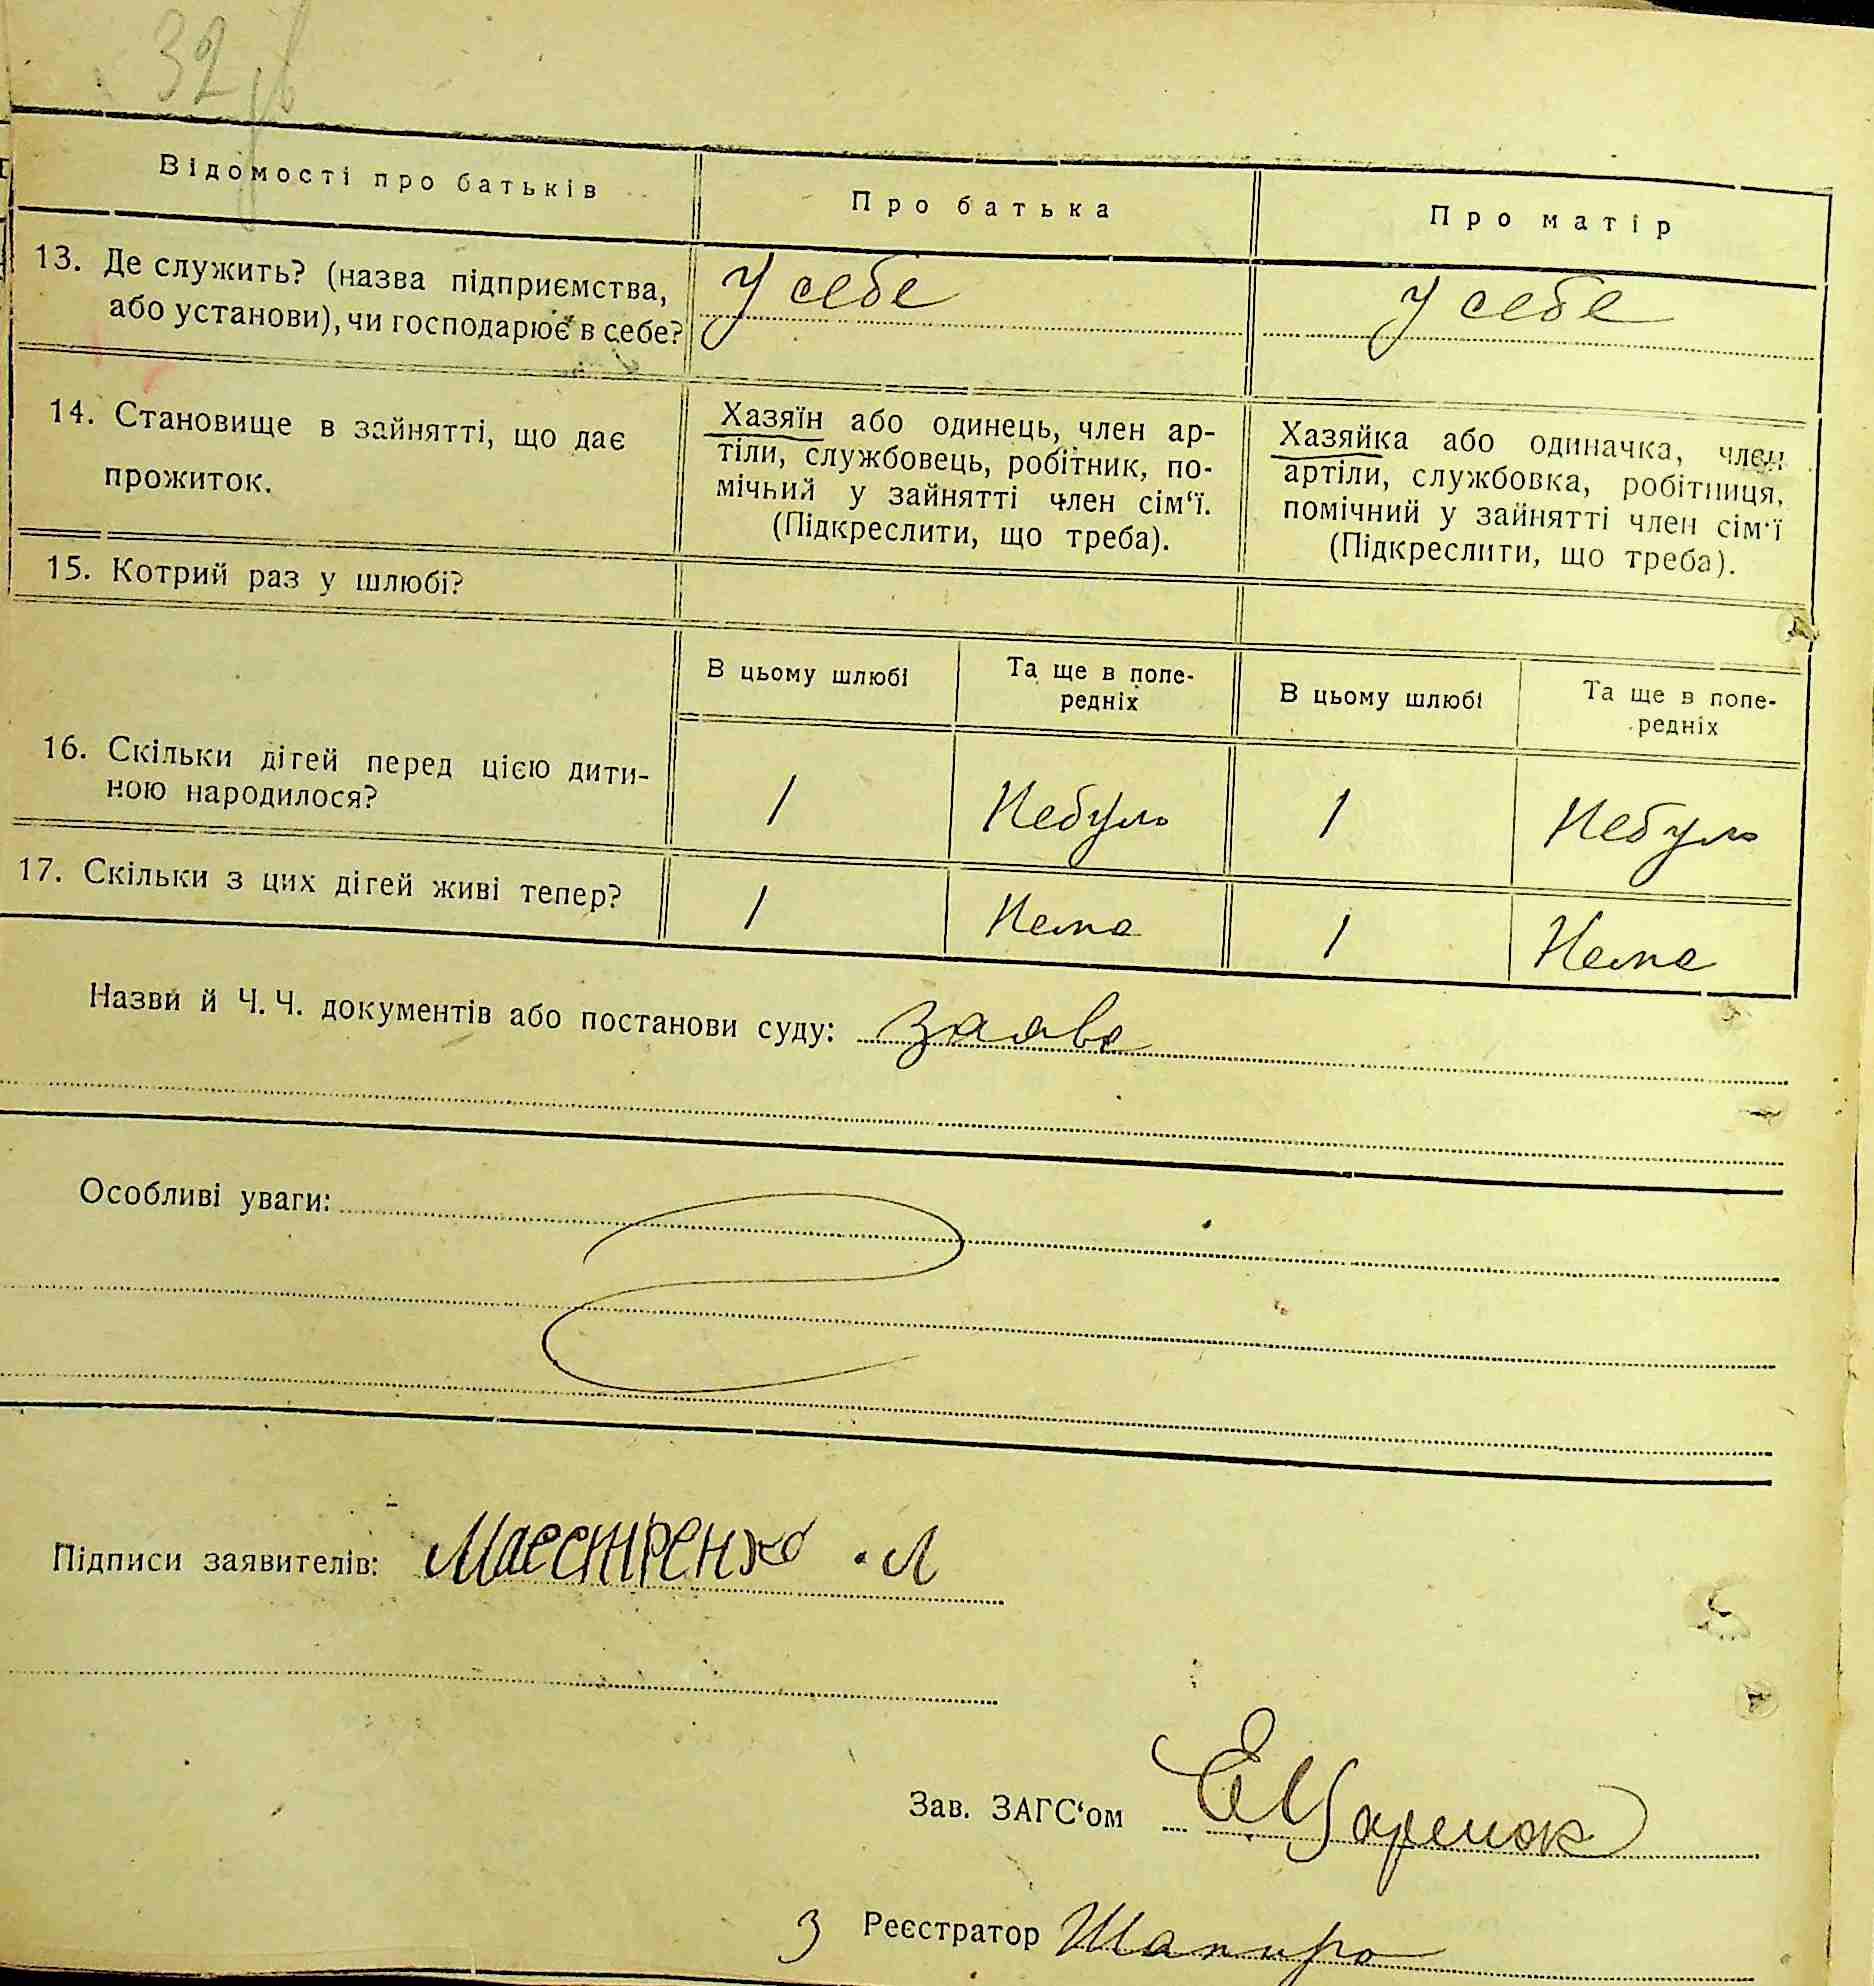 32
Відомості про батьків
Про батька
Про матір
13. Де служить? (назва підприємства,
або установи), чи господарює в себе?
У себе
У себе
14. Становище в зайнятті, що дає
прожиток.
Хазяїн або одинець, член ар-
тіли, службовець, робітник, по-
мічний у зайнятті член сім‘ї.
(Підкреслити, що треба).
Хазяйка або одиначка, член
артіли, службовка, робітниця,
помічний у зайнятті член сім‘ї
(Підкреслити, що треба).
15. Котрий раз у шлюбі?
В цьому шлюбі
Та ще в попе-
редніх
В цьому шлюбі
Та ще в попе-
редніх
16. Скільки дітей перед цією дити-
ною народилося?
1
Небуло
1
Небуло
17. Скільки з цих дітей живі тепер?
1
Нема
1
Нема
Назви й Ч. Ч. документів або постанови суду: заява
Особливі уваги:
Підписи заявителів: Маестренко . Л
Зав. ЗАГС‘ом
З Реєстратор Шапиро